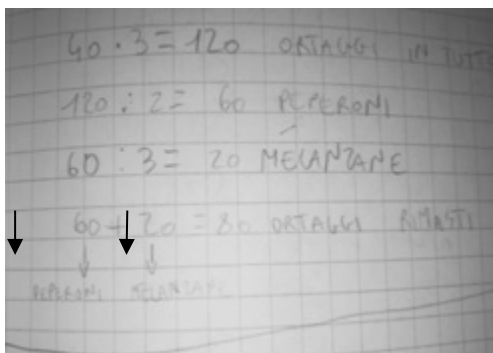 40 · 3 = 120 ORTAGGI IN TUTTO
120 : 2 = 60 PEPERONI
60 : 3 = 20 MELANZANE
60 + 20 = 80 ORTAGGI RIMASTI
PEPERONI MELANZANE